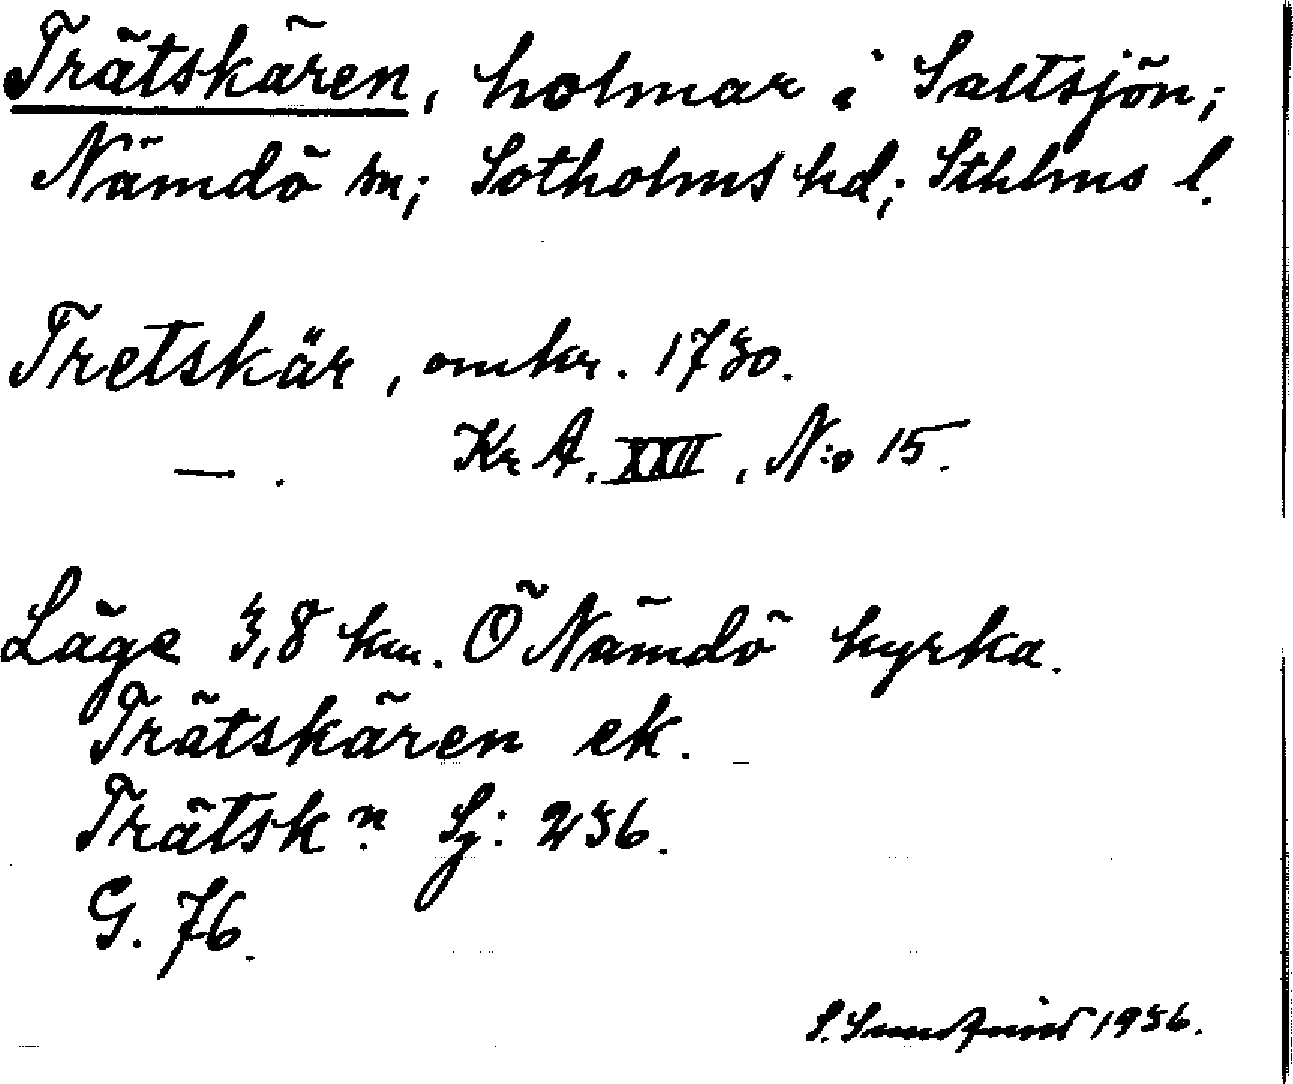 Trätskären, holmar i Saltsjön;
Nämdö sn; Sotholms hd; Sthlms l.
Tretskär, omkr. 1730.
— . Kr A. XXII, N:o 15.
Läge 3,8 km. Ö Nämdö kyrka.
Trätskären ek.
Trätskn. Sj: 236.
G. 76.
S. Sundqvist 1936.